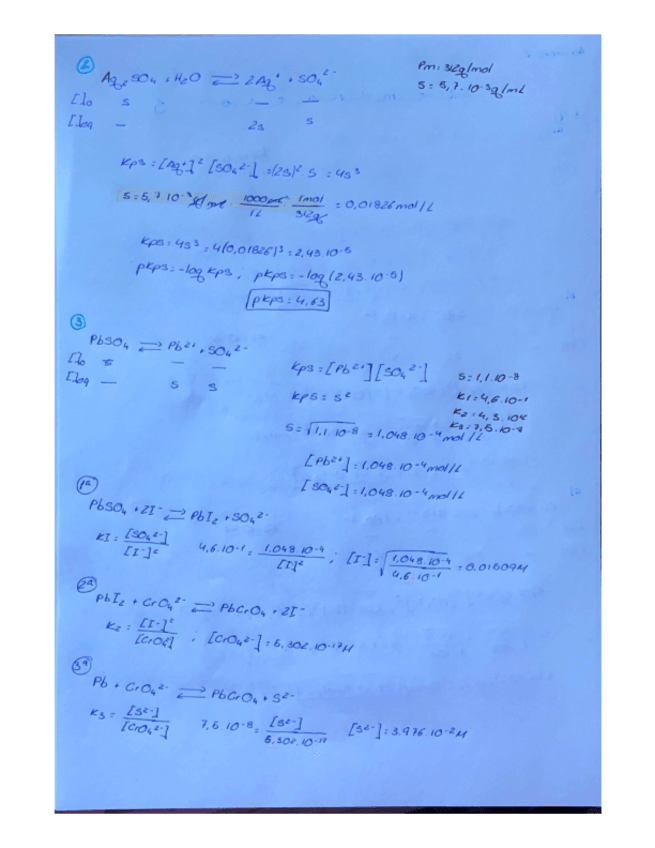 2
Ag₂SO₄ + H₂O ⇌ 2Ag⁺ + SO₄²⁻
Pm: 312g/mol
S = 5,7·10⁻³g/mL
[]₀ S — —
[]eq — 2s s
Kps = [Ag⁺]² [SO₄²⁻] = (2s)² · s = 4s³
S = 5,7·10⁻³ g/mL · 1000mL/1L · 1mol/312g = 0,01826 mol/L
Kps = 4s³ = 4(0,01826)³ = 2,43·10⁻⁵
pKps = -log Kps, pKps = -log (2,43·10⁻⁵)
pKps = 4,63
3
PbSO₄ ⇌ Pb²⁺ + SO₄²⁻
[]₀ s — —
[]eq — s s
Kps = [Pb²⁺][SO₄²⁻]
Kps = s²
S = 1,1·10⁻⁸
K1 = 4,6·10⁻¹
K2 = 4,3·10¹²
K3 = 7,5·10⁻⁸
S = √1,1·10⁻⁸ = 1,048·10⁻⁴ mol/L
[Pb²⁺] = 1,048·10⁻⁴ mol/L
[SO₄²⁻] = 1,048·10⁻⁴ mol/L
1ª
PbSO₄ + 2I⁻ ⇌ PbI₂ + SO₄²⁻
K1 = [SO₄²⁻]/[I⁻]² 4,6·10⁻¹ = 1,048·10⁻⁴/[I⁻]² ; [I⁻] = √1,048·10⁻⁴/4,6·10⁻¹ = 0.01509M
2ª
PbI₂ + CrO₄²⁻ ⇌ PbCrO₄ + 2I⁻
K2 = [I⁻]²/[CrO₄²⁻] ; [CrO₄²⁻] = 5,302·10⁻¹⁷M
3ª
Pb + CrO₄²⁻ ⇌ PbCrO₄ + S²⁻
K3 = [S²⁻]/[CrO₄²⁻] 7,5·10⁻⁸ = [S²⁻]/5,302·10⁻¹⁷ [S²⁻] = 3.976·10⁻²M